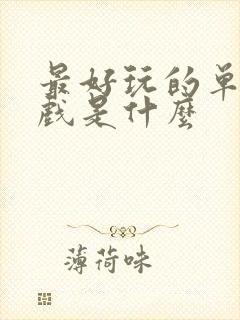 最好玩的单
戏是什麼
薄荷味